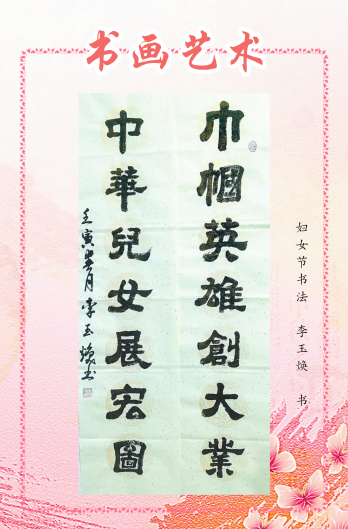 书画艺术
巾帼英雄創大業
中華兒女展宏圖
壬寅 月李玉焕书
妇女节书法 李玉焕 书